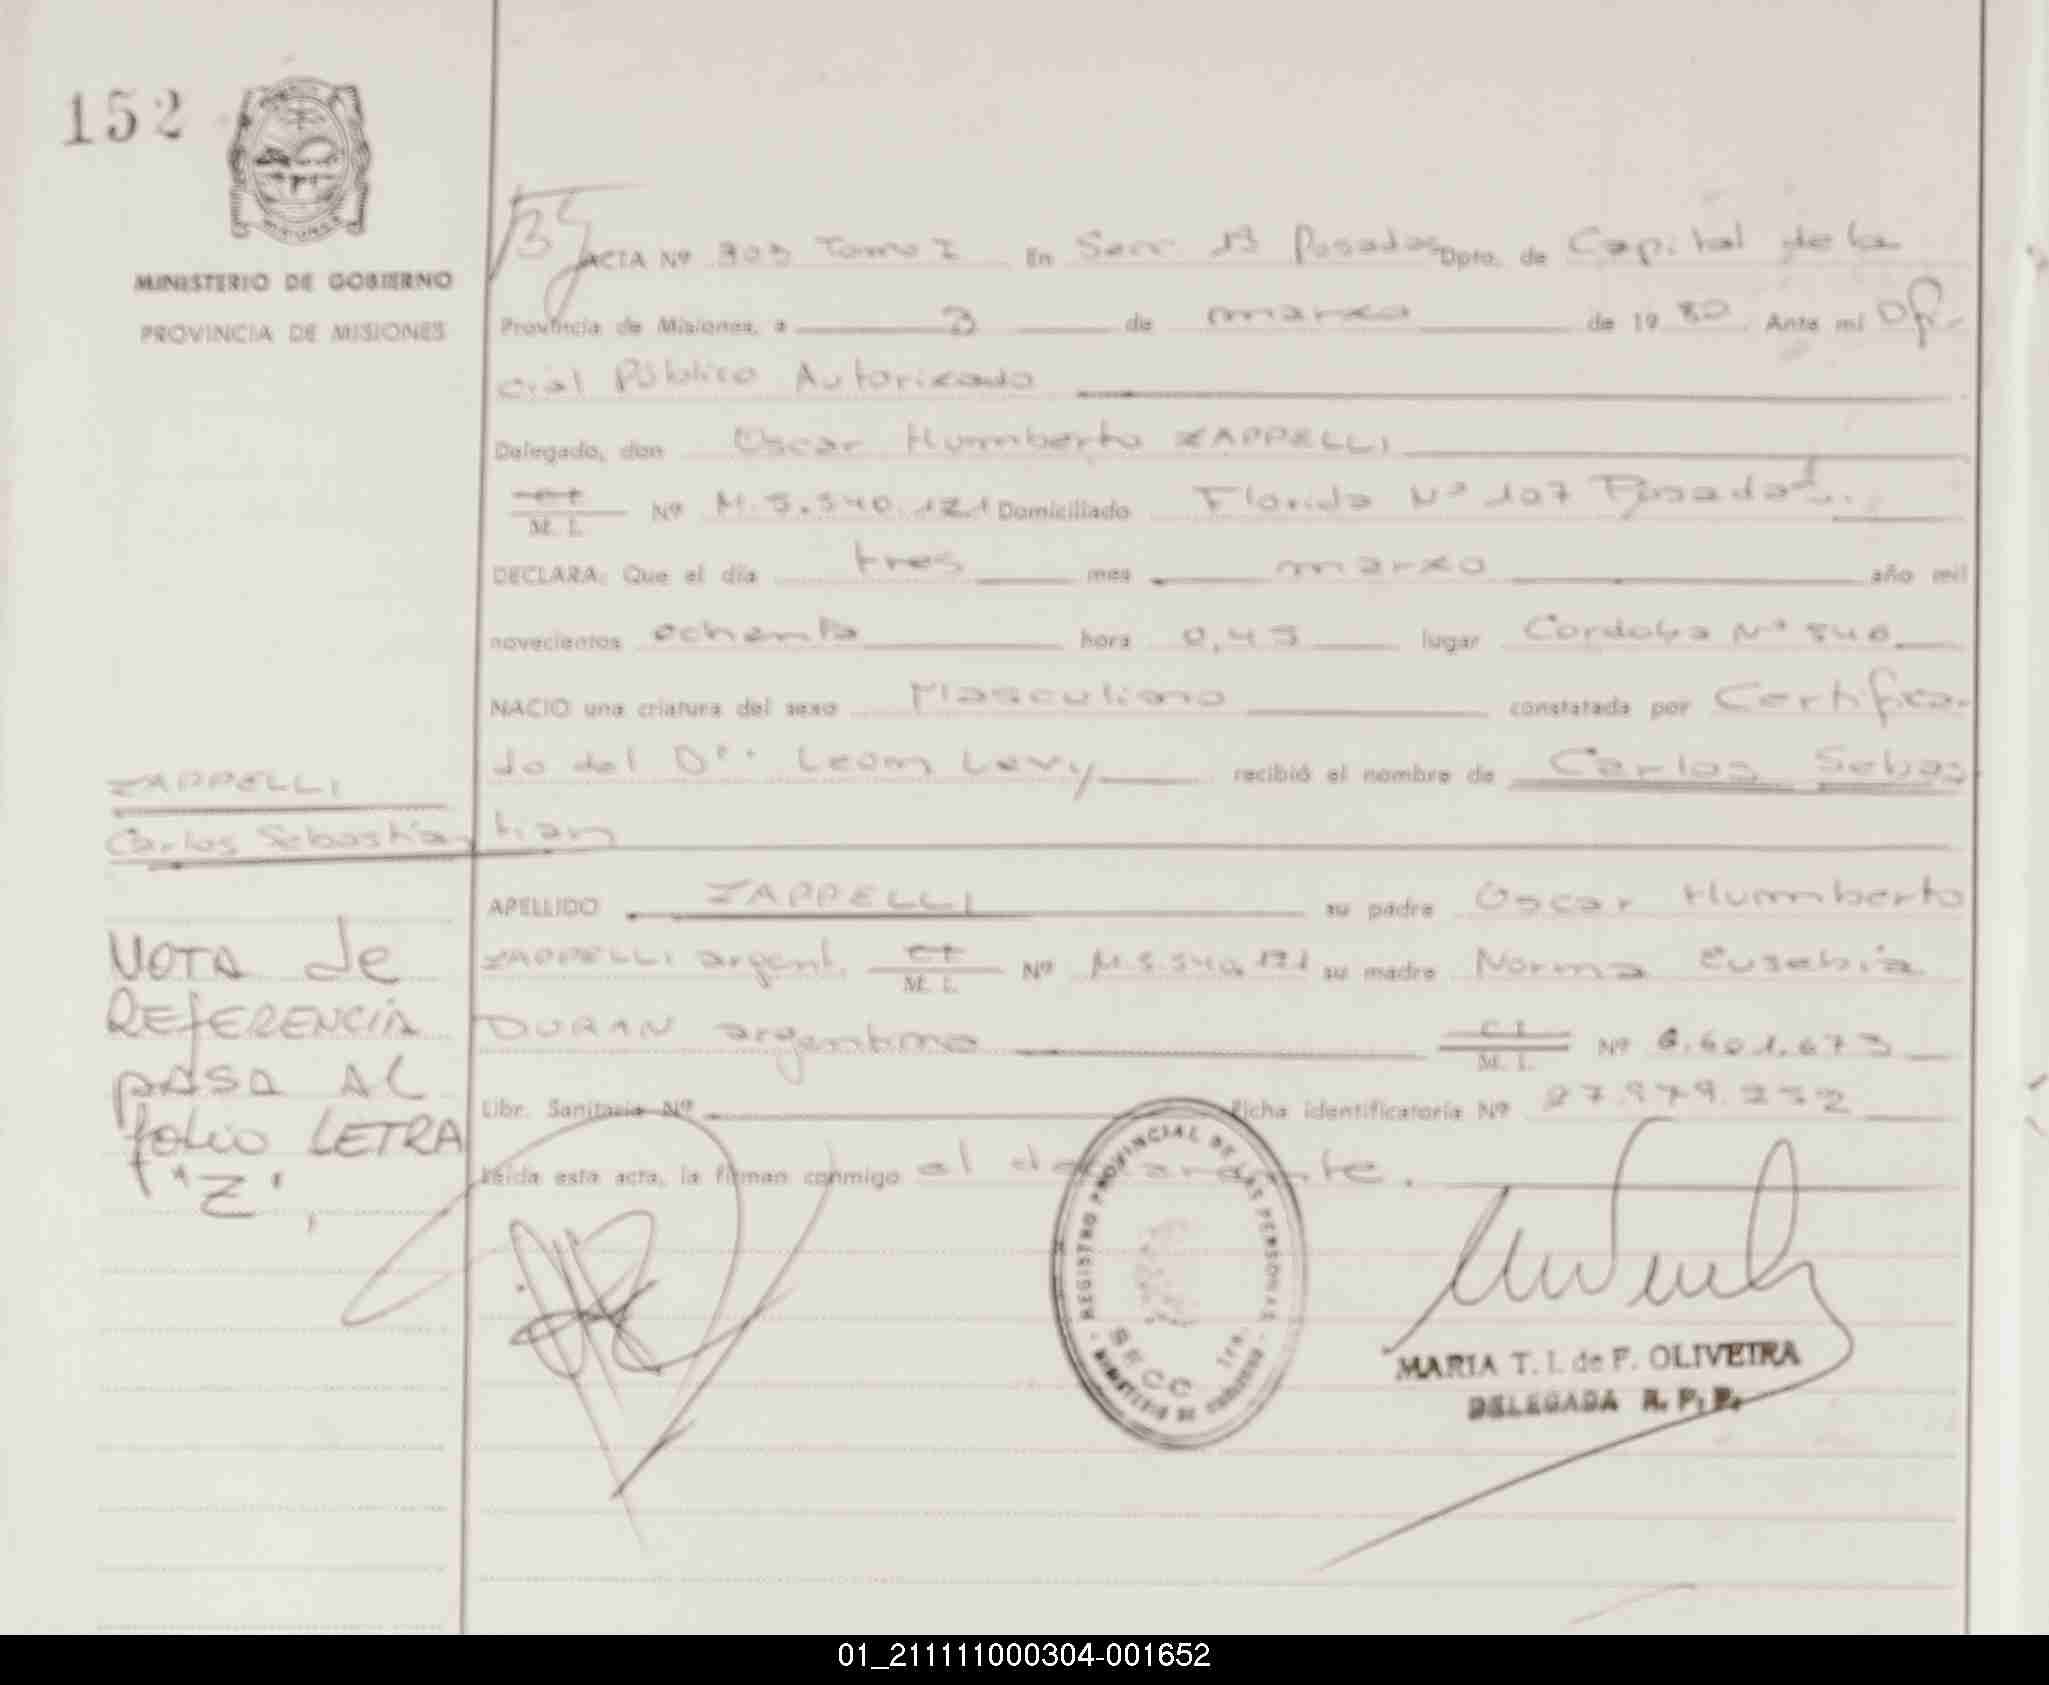 152
MISIONES
MINISTERIO DE GOBIERNO
PROVINCIA DE MISIONES
ACTA Nº 303 Tomo I En Secc. 1ª Posadas Dpto. de Capital de la
Provincia de Misiones, a 3 de marzo de 1980 Ante mi Ofi-
cial Público Autorizado
Delegado, don Oscar Humberto ZAPPELLI
C I
M. I. Nº M.5.540.121 Domiciliado Florida Nº 107 Posadas
DECLARA: Que el día tres mes marzo año mil
novecientos ochenta hora 0,45 lugar Cordoba Nº 846
NACIO una criatura del sexo Masculino constatada por Certifica-
do del Dr. Leon Levy recibió el nombre de Carlos Sebas
tian
ZAPPELLI
Carlos Sebastian
APELLIDO ZAPPELLI su padre Oscar Humberto
ZAPPELLI argent. C I
M. I. Nº M.5.540.121 su madre Norma Eusebia
DURAN argentina C I
M. I. Nº 6.601.673
Libr. Sanitaria Nº Ficha identificatoria Nº 27.979.252
Leída esta acta, la firman conmigo el declarante.
NOTA de
REFERENCIA
PASA AL
folio LETRA
"Z".
REGISTRO PROVINCIAL DE LAS PERSONAS
SECC 1ra.
MINISTERIO DE GOBIERNO
MARIA T. I. de F. OLIVEIRA
DELEGADA R. P. P.
01_211111000304-001652